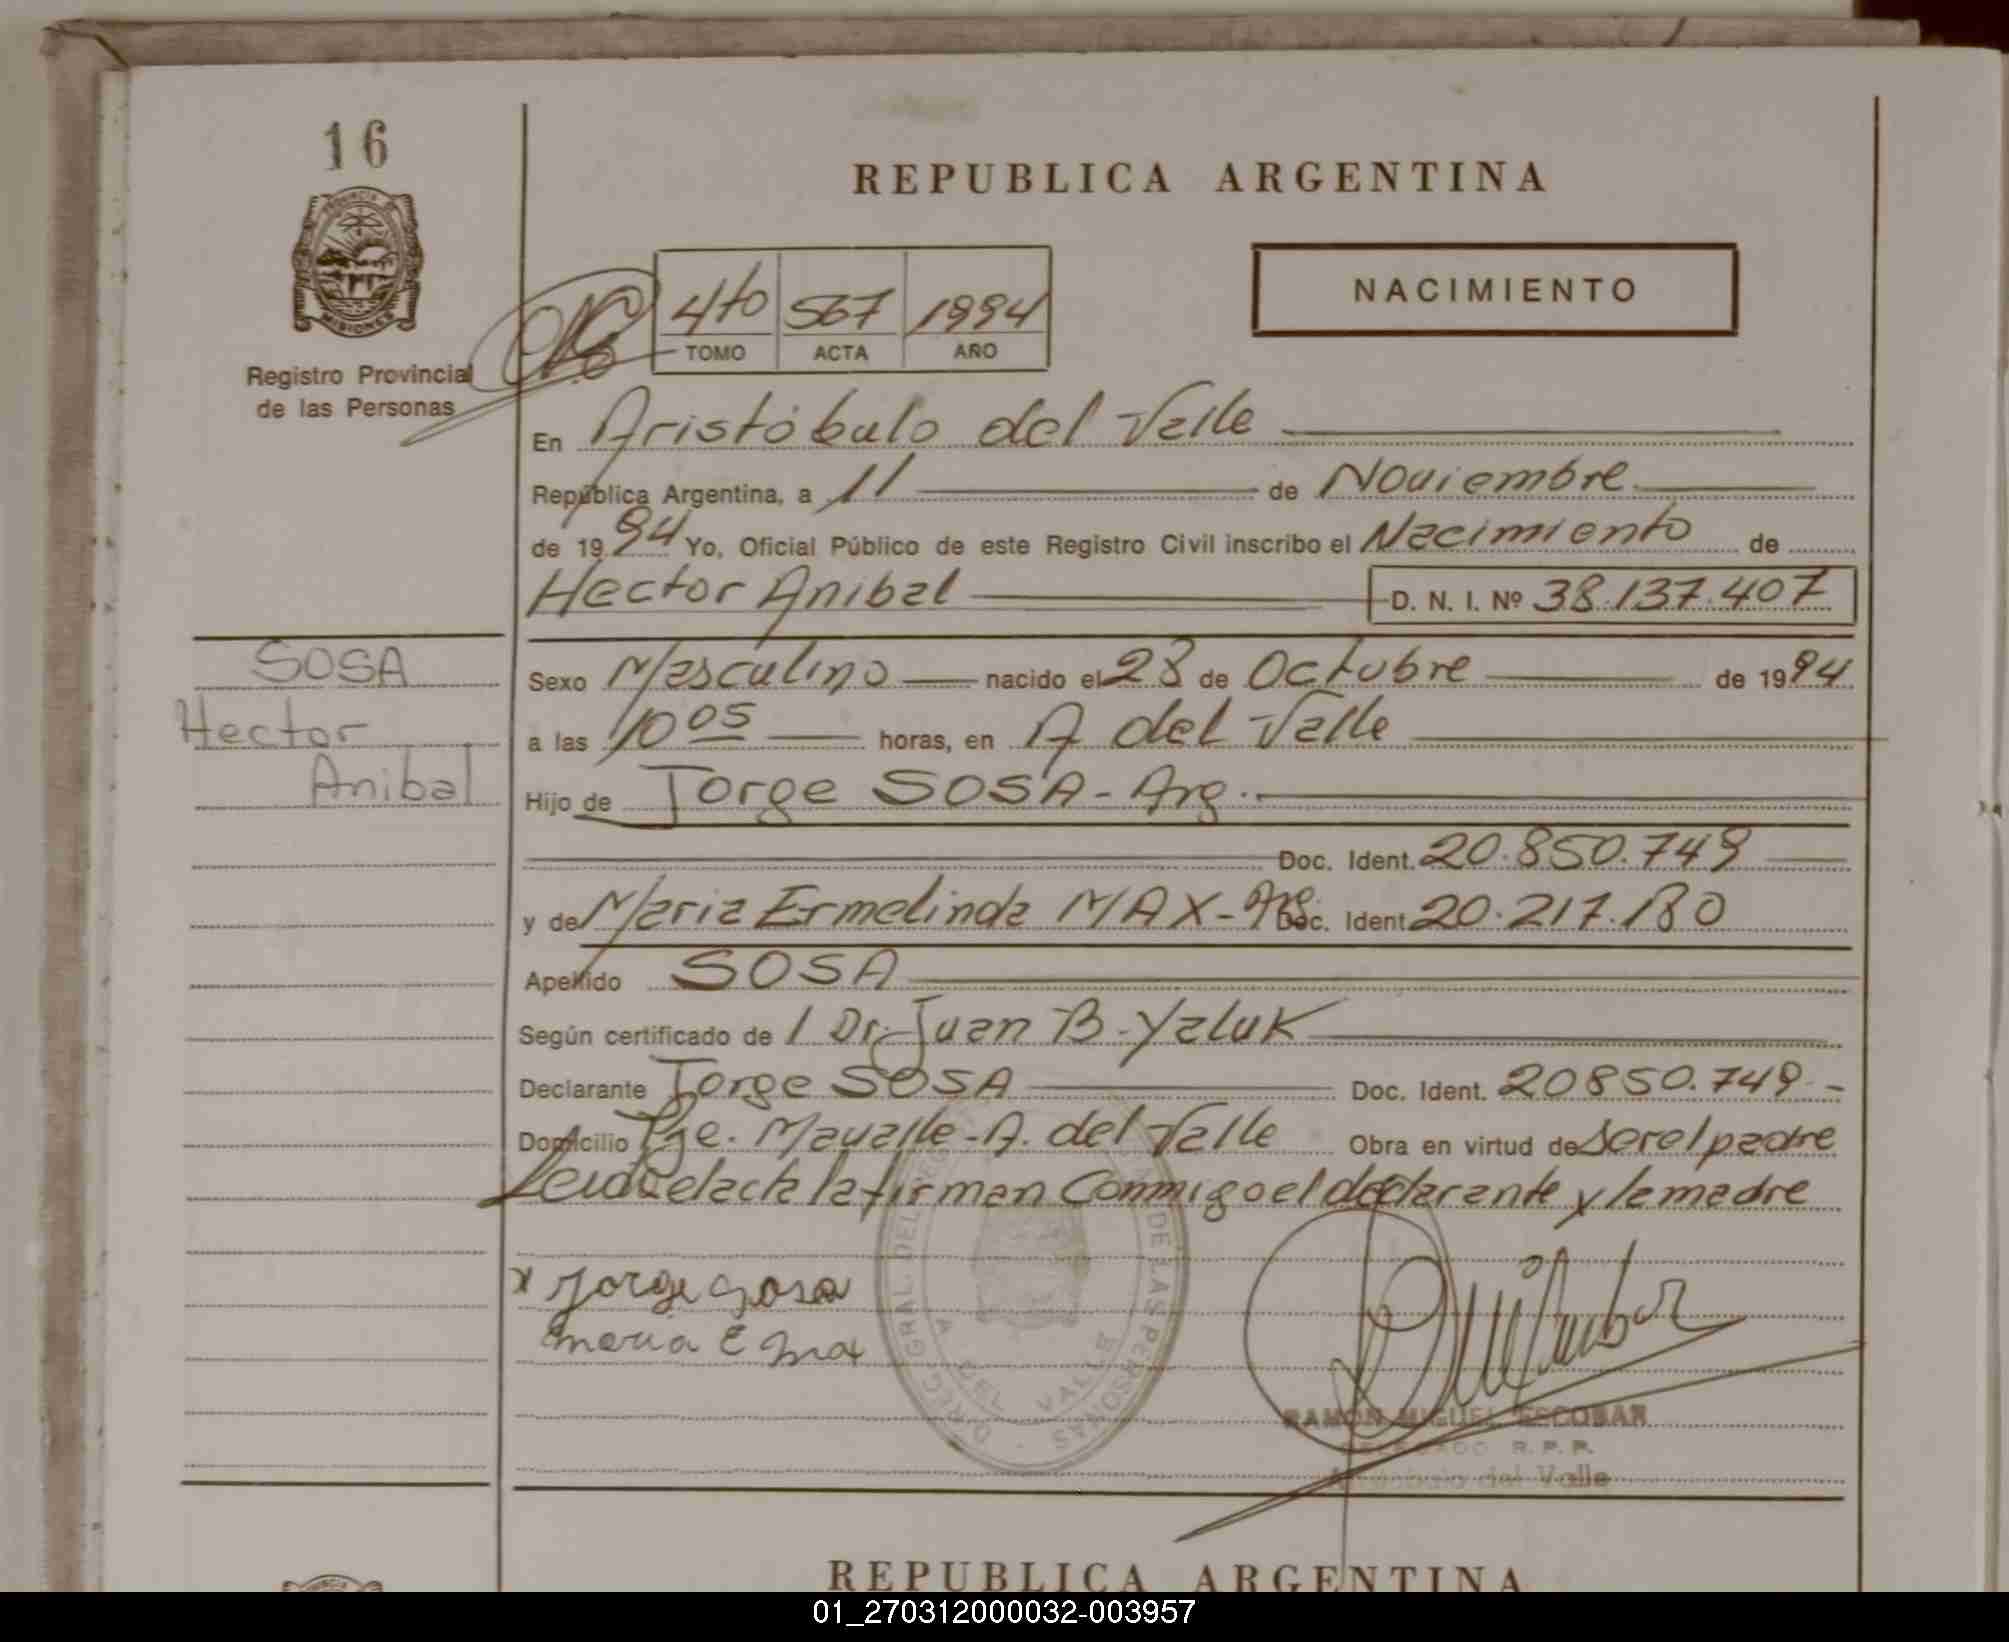 16
REPUBLICA ARGENTINA
PROVINCIA DE
MISIONES
Registro Provincial
de las Personas
4to 567 1994
TOMO ACTA AÑO
NACIMIENTO
En Aristóbulo del Valle
República Argentina, a 11 de Noviembre
de 1994 Yo, Oficial Público de este Registro Civil inscribo el Nacimiento de
Hector Anibal D. N. I. Nº 38.137.407
SOSA
Hector
Anibal
Sexo Masculino nacido el 28 de Octubre de 1994
a las 10 05 horas, en A del Valle
Hijo de Jorge SOSA - Arg.
Doc. Ident. 20.850.749
y de Maria Ermelinda MAX - Arg. Doc. Ident. 20.217.180
Apellido SOSA
Según certificado de / Dr. Juan B. Yaluk
Declarante Jorge SOSA Doc. Ident. 20850.749
Domicilio Pje. Mavalle - A. del Valle Obra en virtud de ser el padre
Leida el acta la firman Conmigo el declarante y la madre
x Jorge Sosa
Maria E Max
DIREC. GRAL. DEL REGISTRO DE LAS PERSONAS
A. DEL VALLE
RAMON MIGUEL ESCOBAR
DELEGADO R.P.P.
Aristobulo del Valle
REPUBLICA ARGENTINA
01_270312000032-003957